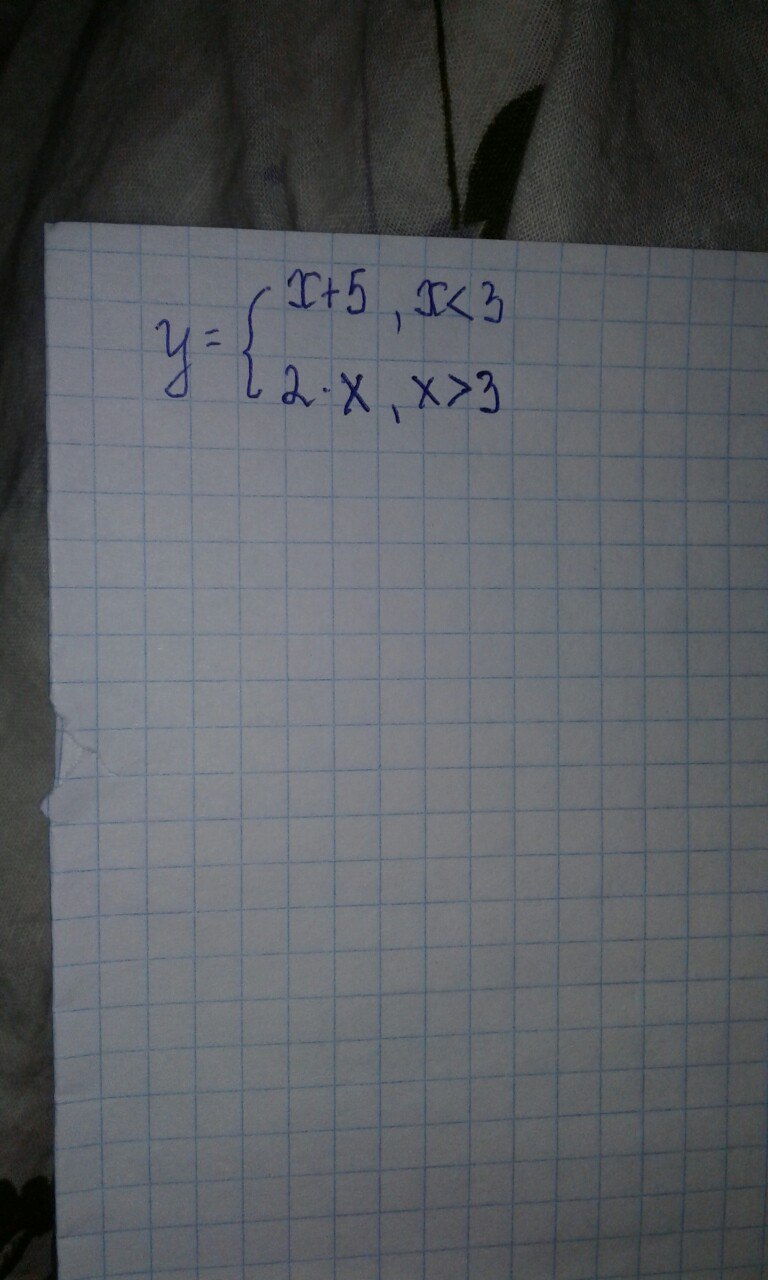 y = { x+5 , x<3
2·x , x>3